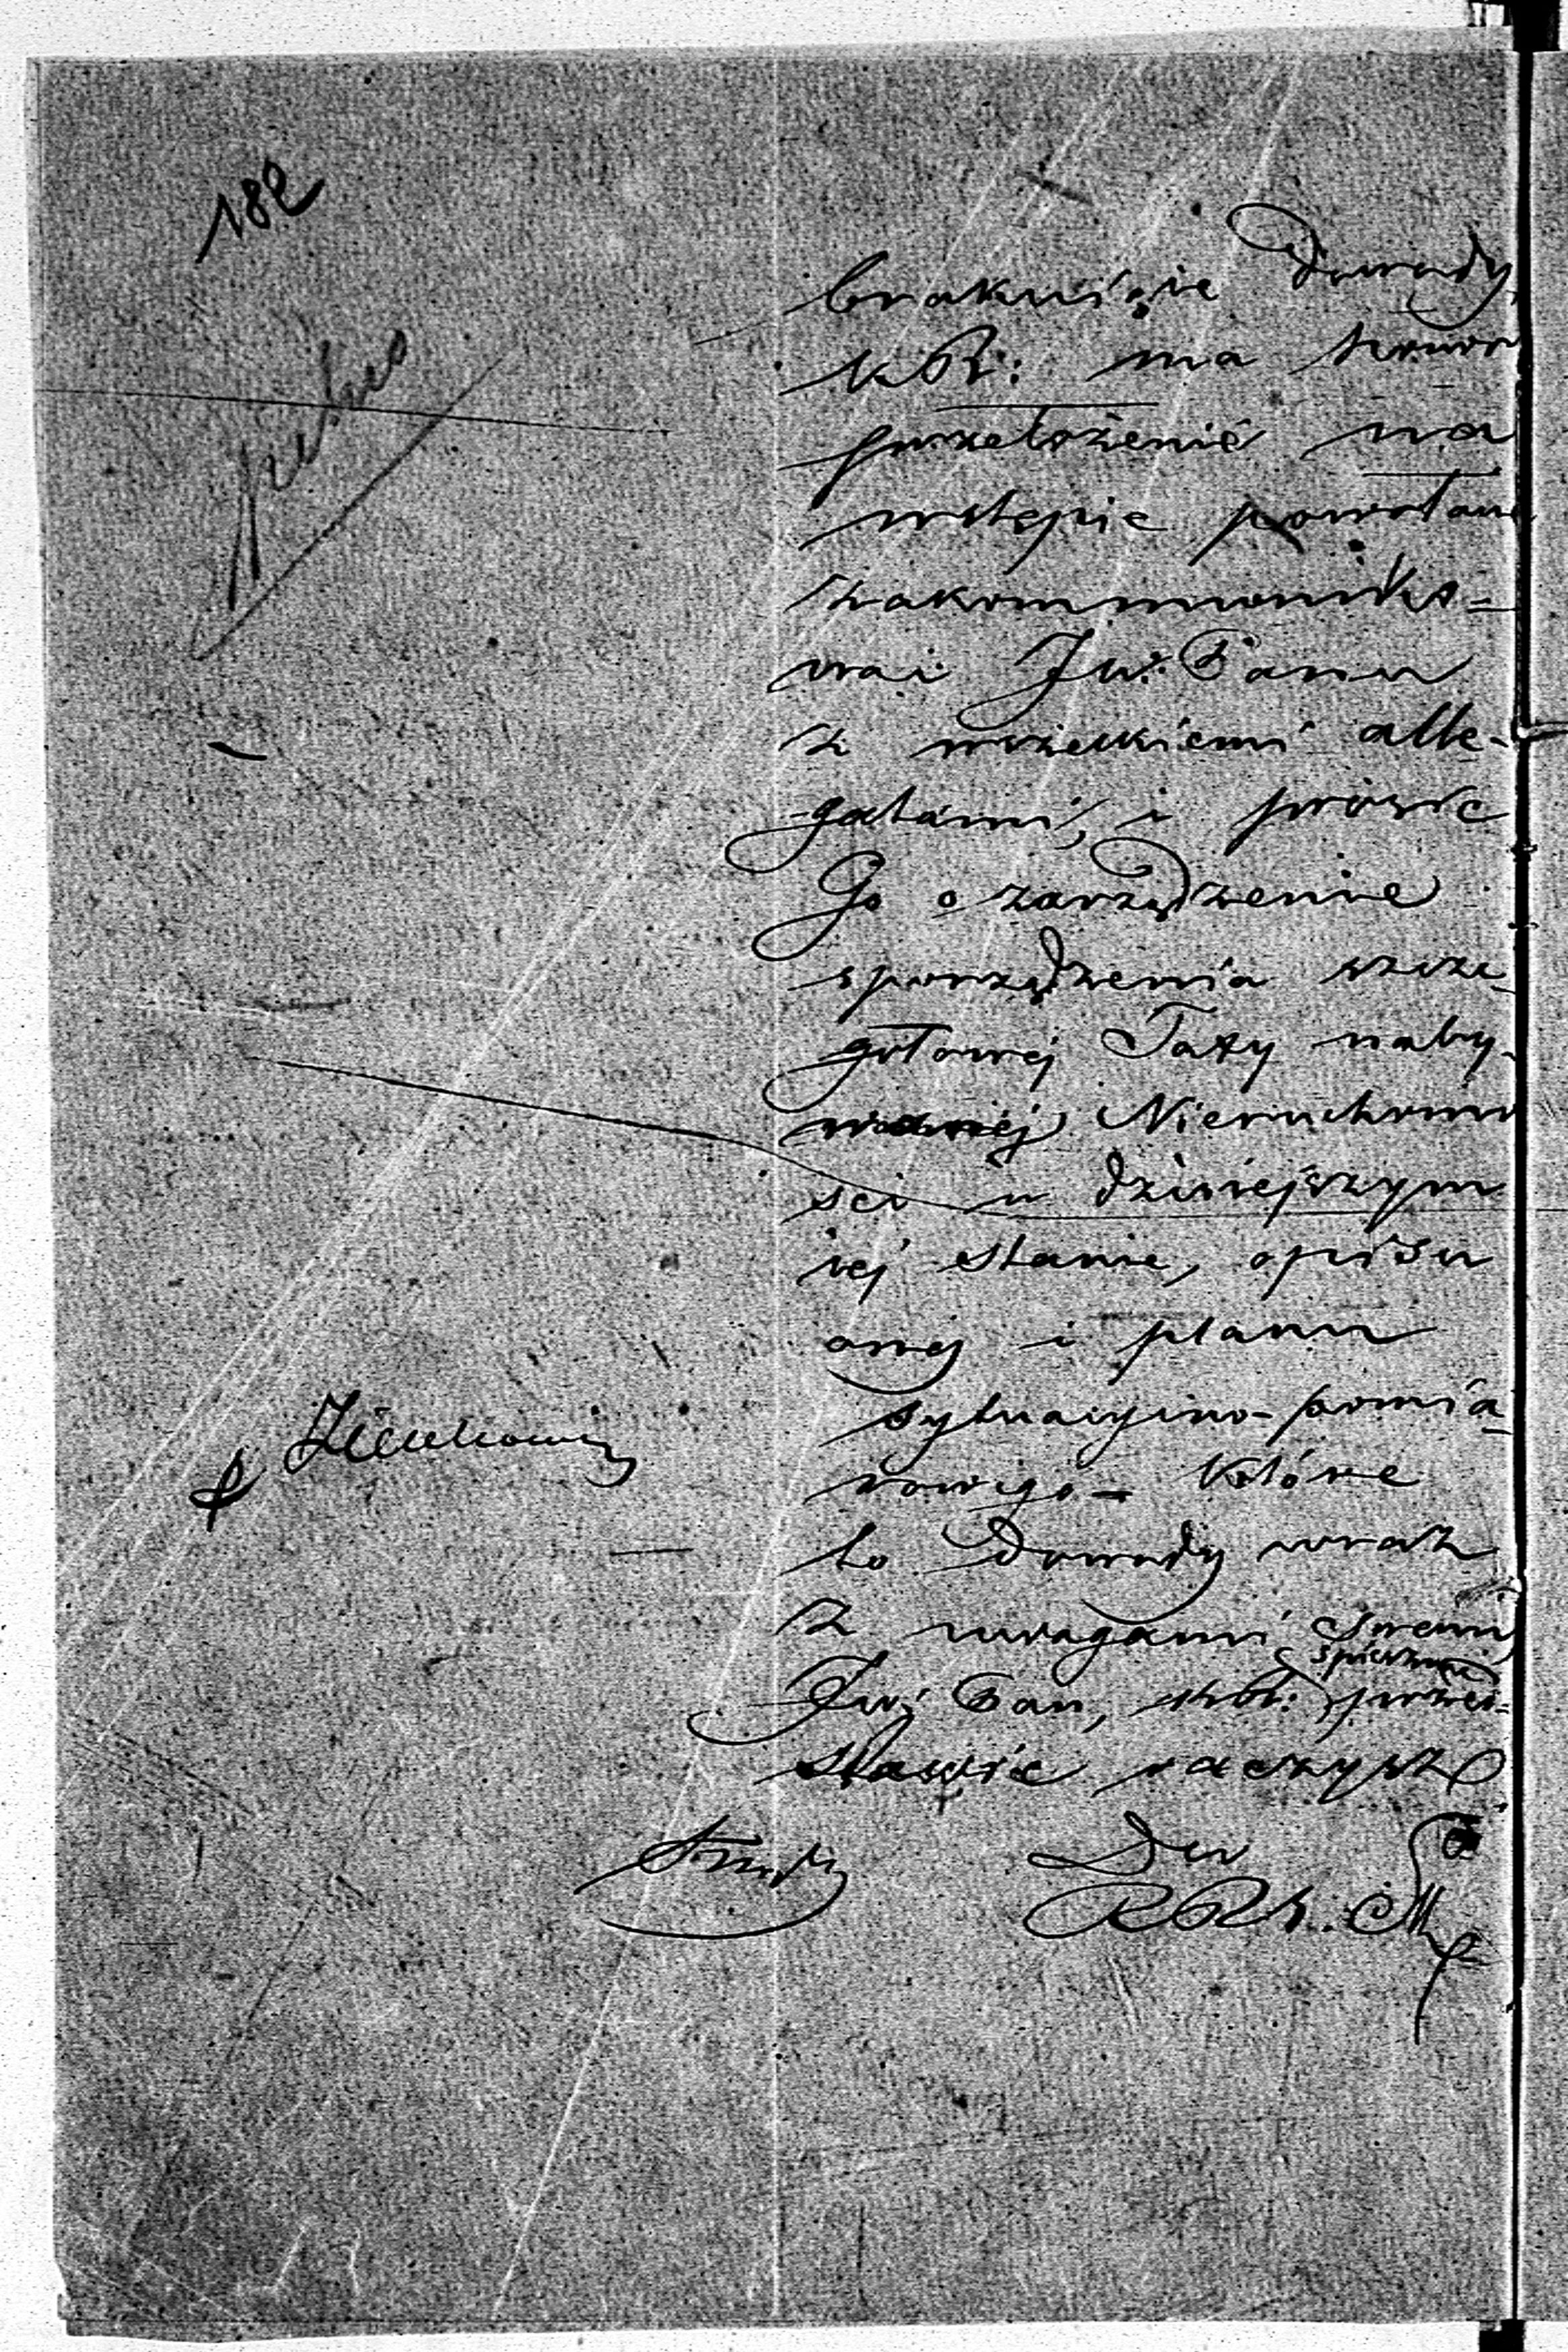 182
brakujące Dowody,
KR: ma honor
przełożenie na
wstępie powołane
zakommuniko-
wać JW. Panu
z wszelkiemi alle-
gatami, i prosić
Go o zarządzenie
sporządzenia szcze-
gółowej Taxy naby-
wanej Nieruchomo
ści w dzisiejszym
jej stanie, opisu
onej i planu
sytuacyjno-pomia-
rowego – które
to Dowody wraz
z uwagami swemi
śpiesznie
JW Pan, KR: przed-
stawić raczysz
Dyr